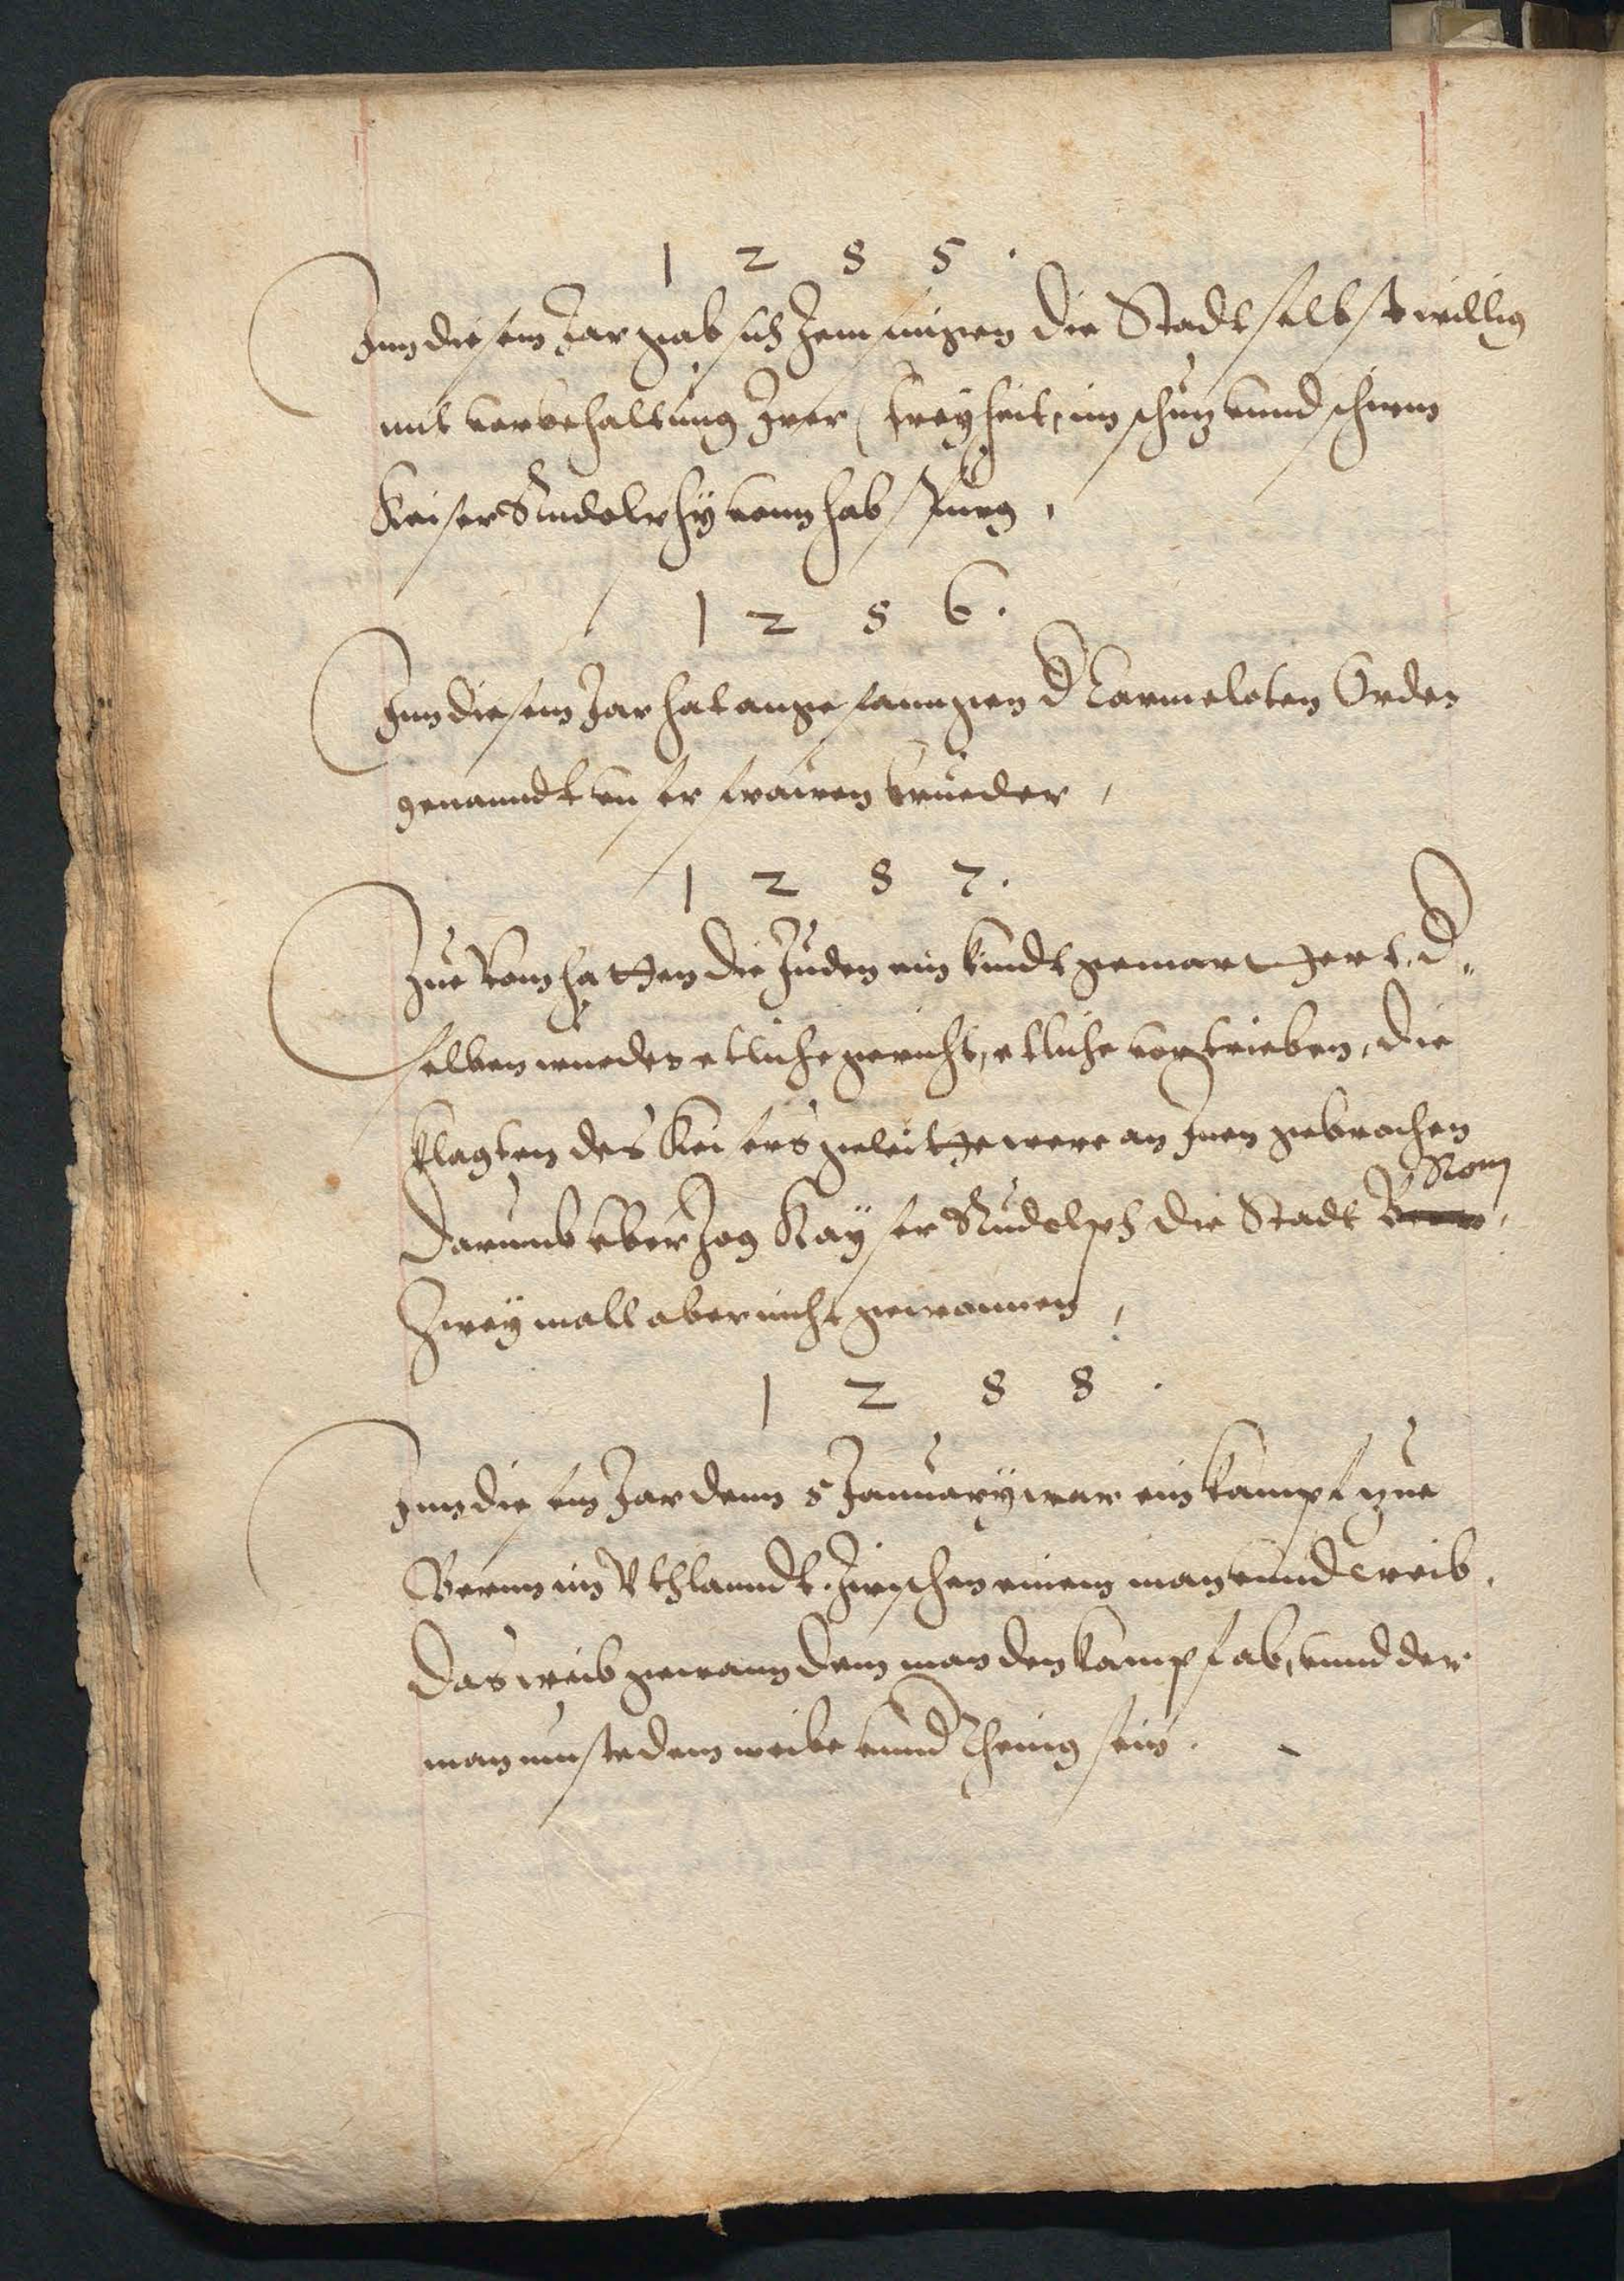 1 2 8 5 .
Inn diesem Jar gab sich Zem singen die Stadt selbst willig
mit vorbehaltung Irer freyheit, im schuz vnnd schirm
Keiser Rudolphy vonn habspurg ,
1 2 8 6 .
Inn diesem Jar hat angefanngen d Carmeloten Orden
genanndt vnser frauwen brueder ,
1 2 8 7 .
Zue Rom hatten die Juden ein kindt gemarthert, d„
selben wurden etliche gericht, etliche vertrieben, die
klagten des Keisers geleitte were an Inen gebrochen
Rom
Darumb vberzog Kayser Rudolph die Stadt Bern ,
Zwey mall aber nicht gewonnen ,
1 2 8 8 .
Inn diesem Jar denn 5 January war ein kampf zue
Bernn im Vthlanndt. Zwischen einem man vnnd weib ,
Das weib gewann dem man den kampf ab, vnnd der
man muste dem weibe vnnd Theinig sein .